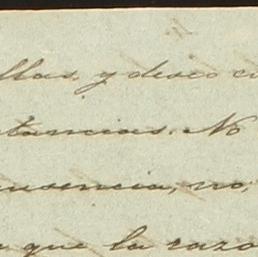 llas, y deseo c
tancias. No
ausencia, no,
que la razo